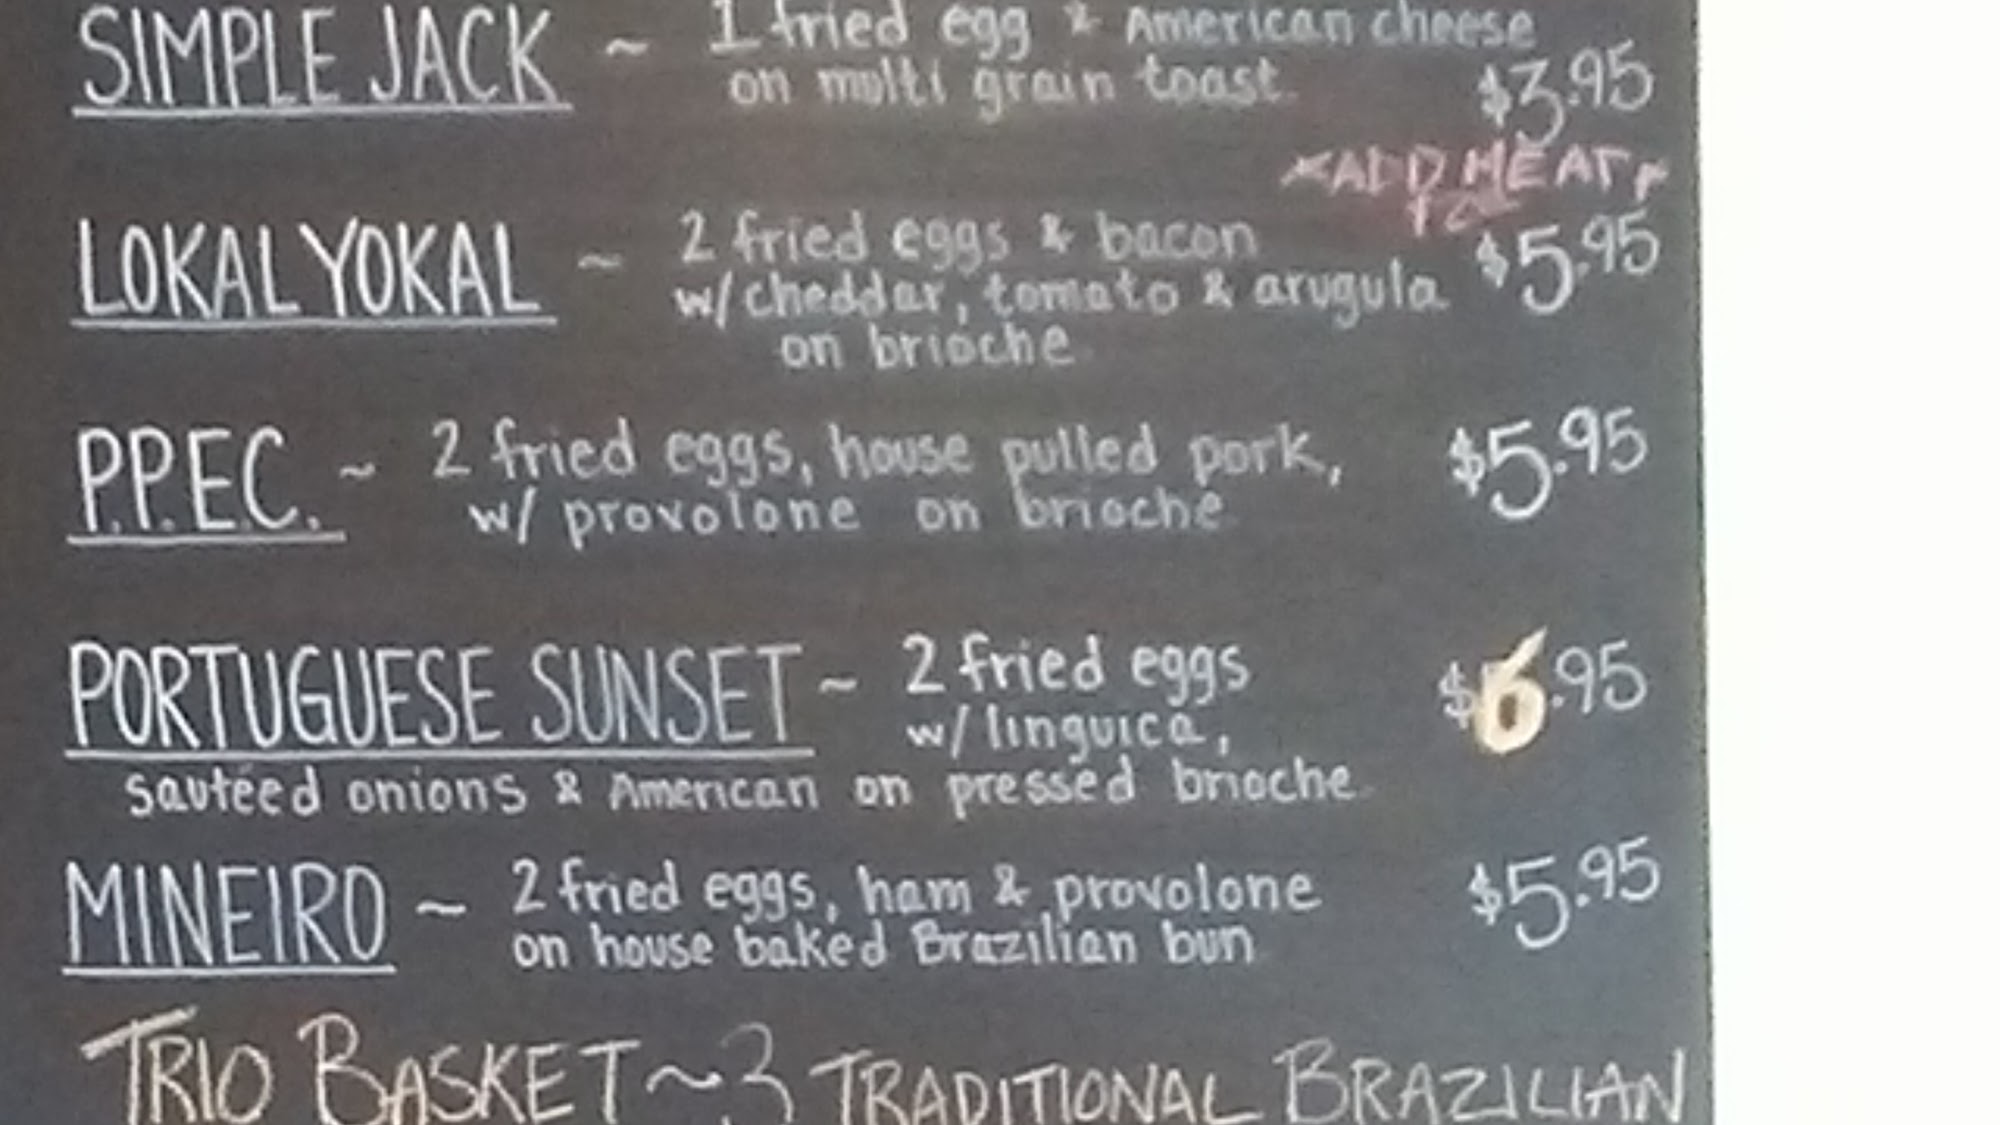 SIMPLE JACK ~ 1 fried egg & American cheese
on multi grain toast $3.95
ADD MEAT
LOKAL YOKAL ~ 2 fried eggs & bacon
w/ cheddar, tomato & arugula $5.95
on brioche
P.P.E.C. ~ 2 fried eggs, house pulled pork, $5.95
w/ provolone on brioche
PORTUGUESE SUNSET ~ 2 fried eggs $6.95
w/ linguica,
sautéed onions & American on pressed brioche
MINEIRO ~ 2 fried eggs, ham & provolone $5.95
on house baked Brazilian bun
TRIO BASKET ~ 3 TRADITIONAL BRAZILIAN